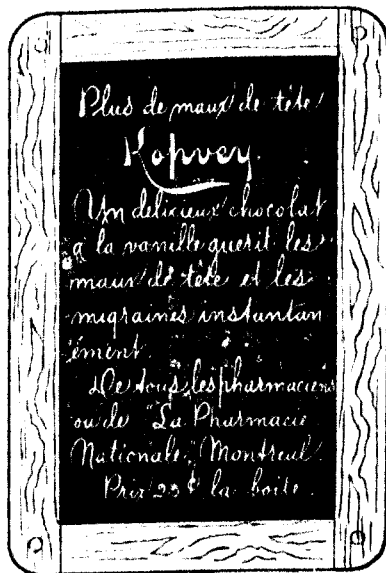 Plus de maux de tête
Kopvey.
Un délicieux chocolat
a la vanille guerit les
maux de tête et les
migraines instantan
ément.
De tous les pharmaciens
ou de "La Pharmacie
Nationale," Montreal.
Prix 25¢ la boite.